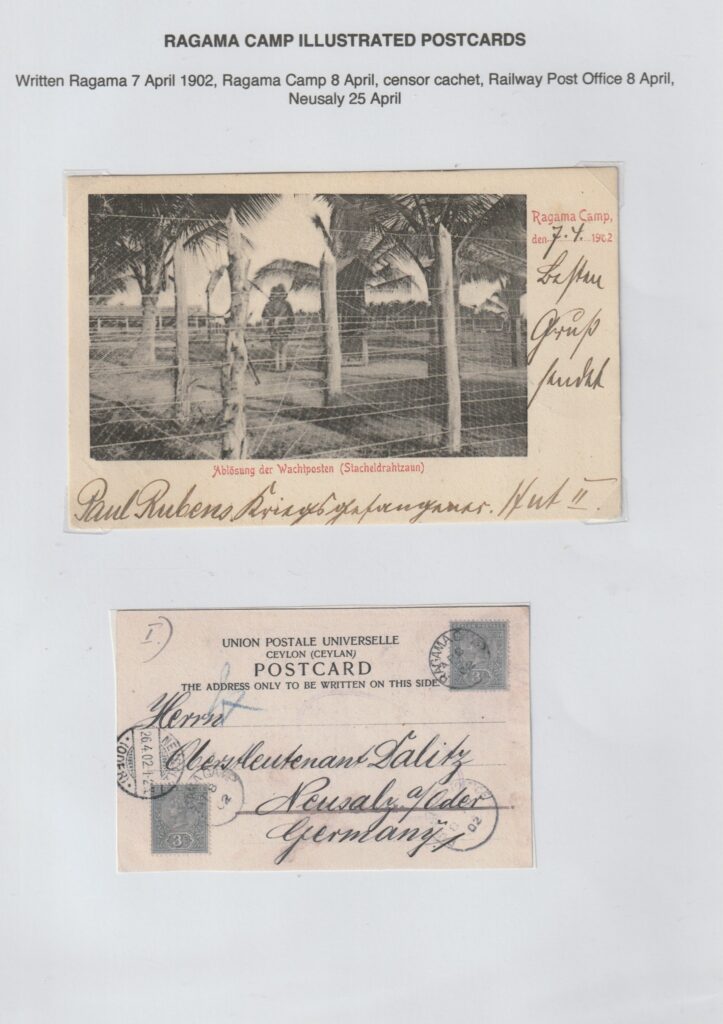 RAGAMA CAMP ILLUSTRATED POSTCARDS
Written Ragama 7 April 1902, Ragama Camp 8 April, censor cachet, Railway Post Office 8 April,
Neusaly 25 April
Ragama Camp,
den 7.4. 1902
Besten
Gruß
sendet
Ablösung der Wachtposten (Stacheldrahtzaun)
Paul Rubens Kriegsgefangener. Hut II.
I.)
UNION POSTALE UNIVERSELLE
CEYLON (CEYLAN)
POSTCARD
THE ADDRESS ONLY TO BE WRITTEN ON THIS SIDE
RAGAMA
Herrn
Oberstleutenant Dalitz
Neusalz a/Oder
Germany
26.4.02.
(ODER)
RAGAMA
8
02
3
02